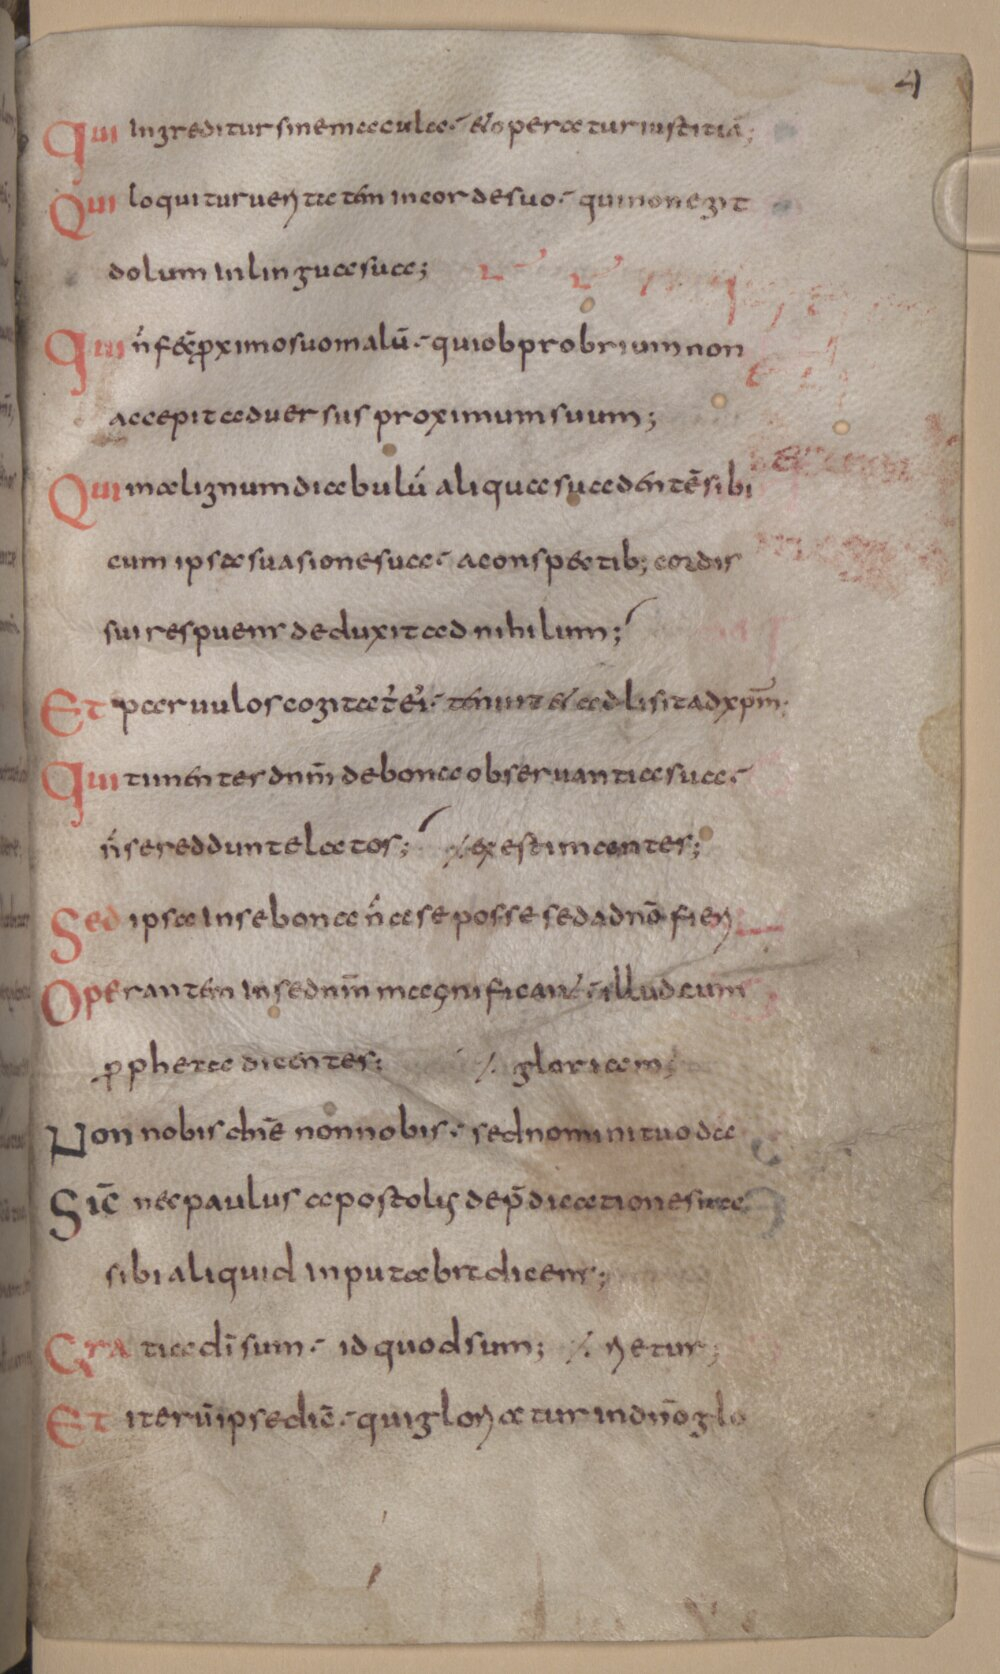 4
Qui ingreditur sine macula· & operatur iustitiā;
Qui loquitur ueritatem in corde suo· qui non egit
dolum in lingua sua;
Qui n̄ fec̄ ꝓximo suo malū· qui obprobrium non
accepit aduersus proximum suum;
Qui malignum diabulū aliqua suadentē sibi
cum ipsa suasione sua· a conspectib; cordis
sui respuens deduxit ad nihilum;
Et paruulos cogitat' ei'· tenuit & adlisit ad xpm̄;
Qui timentes dnm̄ de bona obseruantia sua·
n̄ se reddunt elatos; ⁒ existimantes;
Sed ipsa in se bona n̄ a se posse sed a dnō fieri
Operantem in se dnm̄ magnificant· illud cum
ꝓpheta dicentes; ⁒ gloriam;
Non nobis dn̄e non nobis· sed nomini tuo da
Sic̄ nec paulus apostolus de p̄dicatione sua
sibi aliquid inputabit dicens;
Gratia dī sum· id quod sum; ⁒ rietur;
Et iterū ipse dic̄· qui gloriatur in dnō glo